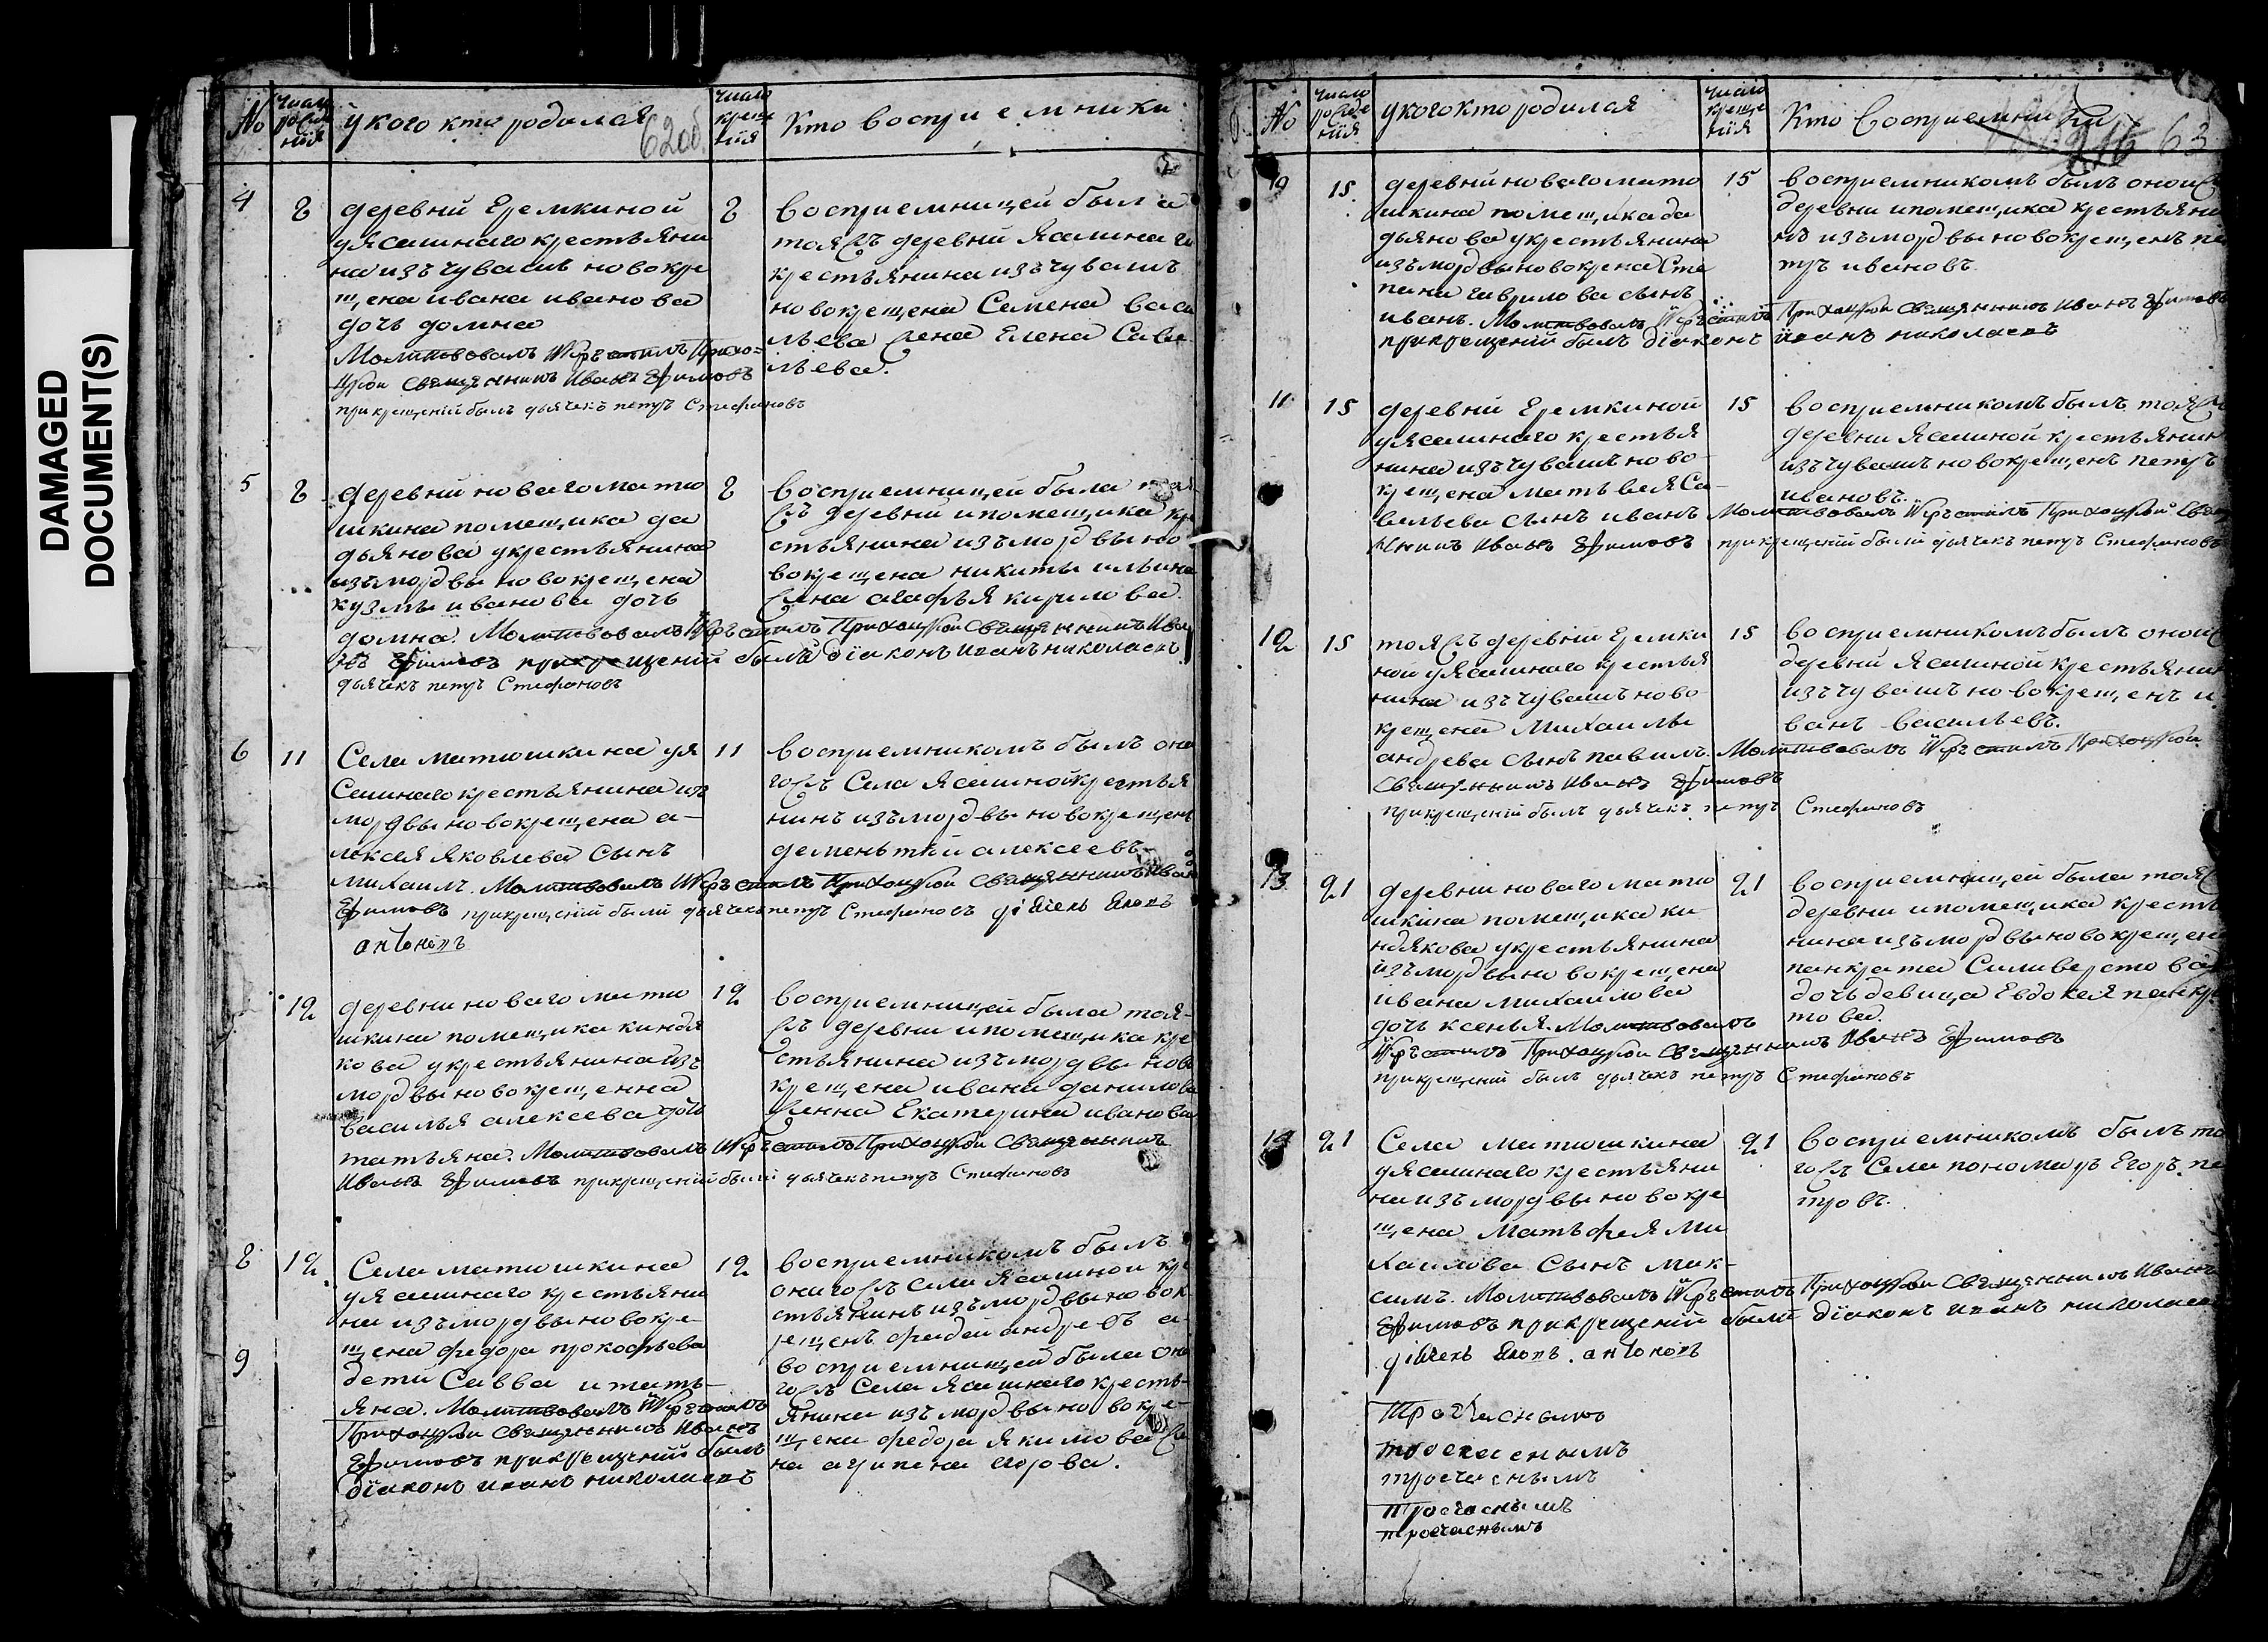 DAMAGED
DOCUMENT(S)
№ число рожде нія у кого кто родился число креще нія Кто восприемники
62об.
4 8 деревни Еремкиной 8
у ясашнаго крестьяни
на изъ чувашъ новокре
щена ивана иванова
дочь домна
Молитвовалъ И Крестилъ Прихо=
цкой священникъ Иванъ Ефимовъ
при крещеніи былъ дьячекъ петръ Стефановъ
восприемницей была
тояжъ деревни Ясашнаго
крестьянина изъ чувашъ
новокрещена Семена васи
льева жена Елена Саве
льева.
5 8 деревни новаго матю 8
шкина помещика да
дьянова у крестьянина
изъ мордвы новокрещена
кузмы иванова дочь
домна. Молитвовалъ И Крестилъ Прихоцкой Священникъ Ива
нъ Ефимовъ при крещеніи былъ діаконъ иванъ николаевъ
дьячекъ петръ Стефановъ
восприемницей была тоя
жъ деревни и помещика кре
стьянина изъ мордвы но
вокрещена никиты ильина
жена агафья кирилова.
6 11 Села матюшкина у я 11
сашнаго крестьянина изъ
мордвы новокрещена а-
лексея яковлева сынъ
михаилъ. Молитвовалъ И Крестилъ Прихоцкой Священникъ Иванъ
Ефимовъ при крещеніи были дьячекъ петръ Стефановъ дiячекъ Яковъ
антоновъ
восприемникомъ былъ она
гожъ Села Ясашной крестья
нинъ изъ мордвы новокрещенъ
дементий алексеевъ
12 деревни новаго матю 12
шкина помещика киндя
кова у крестьянина изъ
мордвы новокрещенна
василья алексеева дочь
татьяна. Молитвовалъ И Крестилъ Прихоцкой Священникъ
Иванъ Ефимовъ при крещеніи были дьячекъ петръ Стефановъ
восприемницей была тоя-
жъ деревни и помещика кре
стьянина изъ мордвы ново
крещена ивана данилова
женна Екатерина иванова
8 12 Села матюшкина 12
у ясашнаго крестьяни
на изъ мордвы новокре-
щена федора прокофьева
9 дети Савва и тать-
яна. Молитвовалъ И Крестилъ
Прихоцкой Священникъ Иванъ
Ефимовъ при крещеніи былъ
діаконъ иванъ николаевъ
восприемникомъ былъ
онагожъ села Ясашной кре
стьянинъ изъ мордвы новок
рещенъ фадей андреевъ а-
восприемницей была она
гожъ Села Ясашнаго кресть-
янина изъ мордвы новокре-
щена федора якимова же
на агрипена егорова.
№ число рожде нія у кого кто родился число креще нія Кто восприемники
63
10 15 деревни новаго матю 15
шкина помещика да
дьянова у крестьянина
изъ мордвы новокрена Сте
пана гаврилова сынъ
иванъ. Молитвовалъ И Крестилъ Прихоцкой Священникъ Иванъ Ефимовъ
при крещеніи былъ діаконъ иванъ николаевъ
восприемникомъ былъ оной
деревни и помещика крестьяни
нъ изъ мордвы новокрещенъ пе
тръ ивановъ.
11 15 деревни Еремкиной 15
у ясашнаго крестья
нина изъ чувашъ ново-
крещена матьвея Са-
вельева сынъ иванъ Молитвовалъ И Крестилъ Прихоцкой Свящ
енникъ Иванъ Ефимовъ при крещеніи были дьячекъ петръ Стефановъ
восприемникомъ былъ тояж
деревни Ясашной крестьянин
изъ чувашъ новокрещенъ петръ
ивановъ.
12 15 тояжъ деревни Еремки 15
ной у ясашнаго крестья
нина изъ чувашъ ново
крещена Михаилы
андреева сынъ павилъ. Молитвовалъ И Крестилъ Прихоцкой
Священникъ Иванъ Ефимовъ
при крещеніи былъ дьячекъ петръ Стефановъ
восприемникомъ былъ оной
деревни Ясашной крестьянин
изъ чувашъ новокрещенъ и
ванъ васильевъ.
13 21 деревни новаго матю 21
шкина помещика ки-
ндякова у крестьянина
изъ мордвы новокрещена
ивана михаилова
дочь ксенья. Молитвовалъ
И Крестилъ Прихоцкой Священникъ Иванъ Ефимовъ
при крещеніи былъ дьячекъ петръ Стефановъ
восприемницей была тояж
деревни и помещика кресть
нина изъ мордвы новокрещена
панкрата Саливерстова
дочь девица Евдокея панкра
това.
14 21 Села матюшкина 21
у ясашнаго крестьяни
на изъ мордвы новокре
щена Матьфея Ми
хаилова Сынъ Мак-
симъ. Молитвовалъ И Крестилъ Прихоцкой Священникъ Иванъ
Ефимовъ при крещеніи были діаконъ иванъ николаевъ
дiячекъ Яковъ. антоновъ
восприемникомъ былъ то
гожъ Села пономарь Егоръ пе
тровъ.